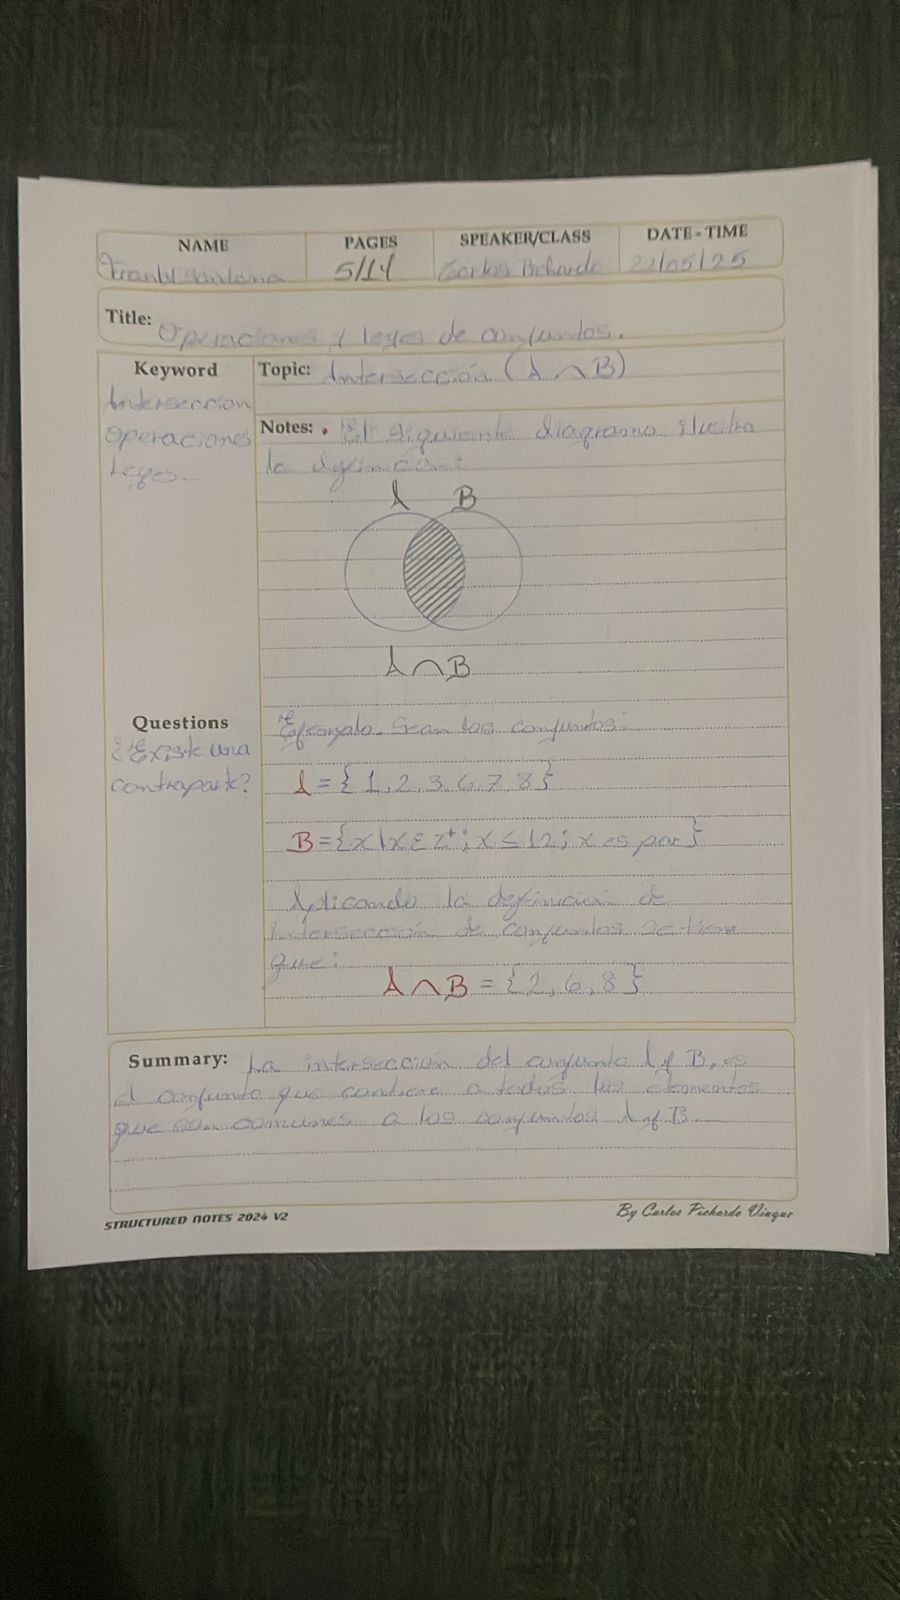 NAME PAGES SPEAKER/CLASS DATE-TIME
Frankl Santana 5/14 Carlos Pichardo 22/05/25
Title: Operaciones y leyes de conjuntos.
Keyword
Intersección
Operaciones
Leyes.
Topic: Intersección (A ∩ B)
Notes: • El siguiente diagrama ilustra
la definición:
A B
A ∩ B
Questions
¿Existe una
contraparte?
Ejemplo. Sean los conjuntos:
A = {1, 2, 3, 6, 7, 8}
B = {x | x ε Z⁺; x ≤ 12; x es par}
Aplicando la definición de
intersección de conjuntos se tiene
que:
A ∩ B = {2, 6, 8}
Summary: La intersección del conjunto A y B, es
el conjunto que contiene a todos los elementos
que son comunes a los conjuntos A y B.
STRUCTURED NOTES 2024 V2 By Carlos Pichardo Viuque